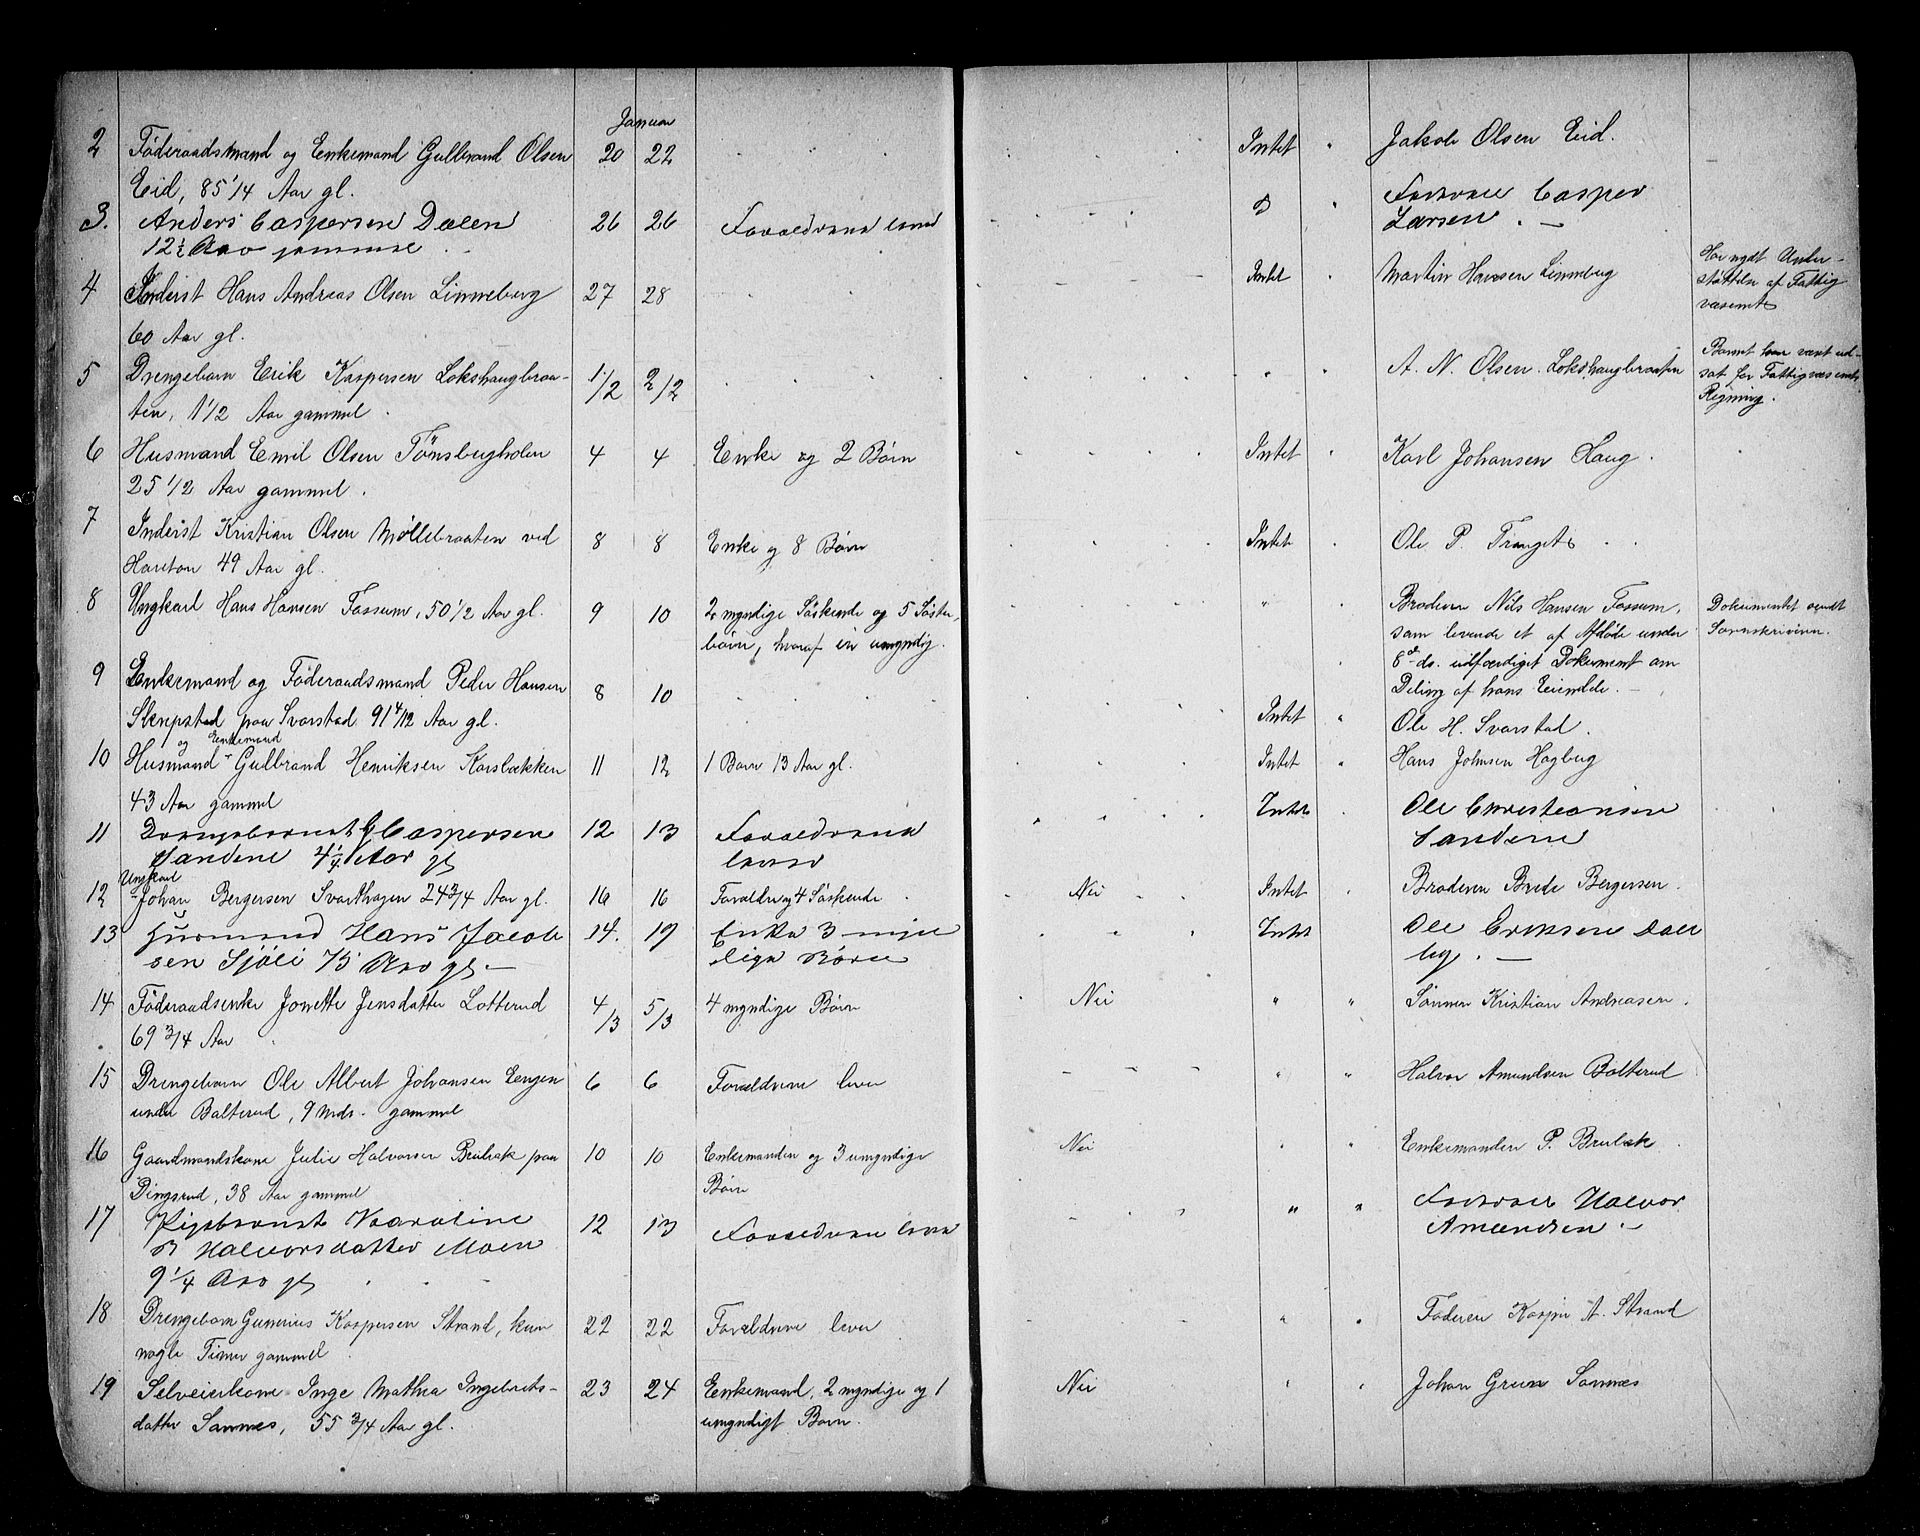 Januar
2 Föderaadsmand og Enkemand Gulbrand Olsen 20 22 Intet " Jakob Olsen Eid.
Eid, 85 1/4 Aar gl.
3. Anders Caspersen Dalen 26 26 Forældrene lever " Faderen Casper
12 1/2 Aar gammel Larsen. —
4 Inderst Hans Andreas Olsen Linneberg 27 28 Intet " Martin Hansen Linneberg Har nydt Under-
60 Aar gl. støttelse af Fattig
væsenet
5 Drengebarn Erik Kaspersen Lokshaugbraa- 1/2 2/2 " " A. N. Olsen Lokshaugbraaten Barnet har været ud-
ten, 1 1/2 Aar gammel. sat for Fattigvæsenets
Regning.
6 Husmand Emil Olsen Tønsbergholen 4 4 Enke og 2 Børn Intet " Karl Johansen Haug.
25 1/2 Aar gammel.
7 Inderst Kristian Olsen Møllebraaten ved 8 8 Enke og 8 Børn Intet " Ole P.
49 Aar gl.
8 Ungkarl Hans Hansen Fossum, 50 1/2 Aar gl. 9 10 2 myndige Söskende og 5 Söster- " Broderen Nils Hansen Fossum, Dokumentet sendt
børn, hvoraf en umyndig. som levende et af Afdøde under Sorenskriveren.
8de ds. udfærdiget Dokument om
Deling af hans Eiendele. —
9 Enkemand og Föderaadsmand Peder Hansen 8 10 Intet " Ole H. Svarstad.
Skrepstad paa Svarstad 91 4/12 Aar gl.
og Enkemand
10 Husmand Gulbrand Henriksen Korsbækken 11 12 1 Barn 13 Aar gl. Intet " Hans Johnsen Hagberg
43 Aar gammel
11 Drengebarnet Caspersen 12 13 Forældrene Intet Ole Christiansen
Sandene 4 1/4 Aar gl lever Sandene
Ungkarl
12 Johan Bergersen Svarthagen 24 3/4 Aar gl. 16 16 Forældre og 4 Söskende. Nei Intet Broderen Brede Bergersen.
13 Husmand Hans Jacob 14. 19 Enke 3 myn Intet Ole Eriksen Dal
sen Sjöli 75 Aar gl. — dige Børn by. —
14 Föderaadsenke Jonette Jensdatter Lotterud 4/3 5/3 4 myndige Børn Nei " " Sönnen Kristian Andreasen.
69 3/4 Aar
15 Drengebarn Ole Albert Johansen Eengen 6 6 Forældrene lever " " Halvor Amundsen Bolterud
under Bolterud, 9 Mds. gammel
16 Gaardmandskone Julie Halvorsen Brubak paa 10 10 Enkemanden og 3 umyndige Nei " " Enkemanden P. Brubak
Dingsrud, 38 Aar gammel Børn
17 Pigebarnet Kaaroline 12 13 Forældrene lever " " Faderen Halvor
Halvorsdatter Moen Amundsen. —
9 1/4 Aar gl
18 Drengebarn Gunerius Kaspersen Strand, kun 22 22 Forældrene lever " " Faderen Kasper A. Strand
nogle Timer gammel
19 Selveierkone Inge Mathea Ingebrets- 23 24 Enkemand, 2 myndige og 1 Nei " " Johan Sonnæs
datter Sonnæs, 55 3/4 Aar gl. umyndigt Barn.